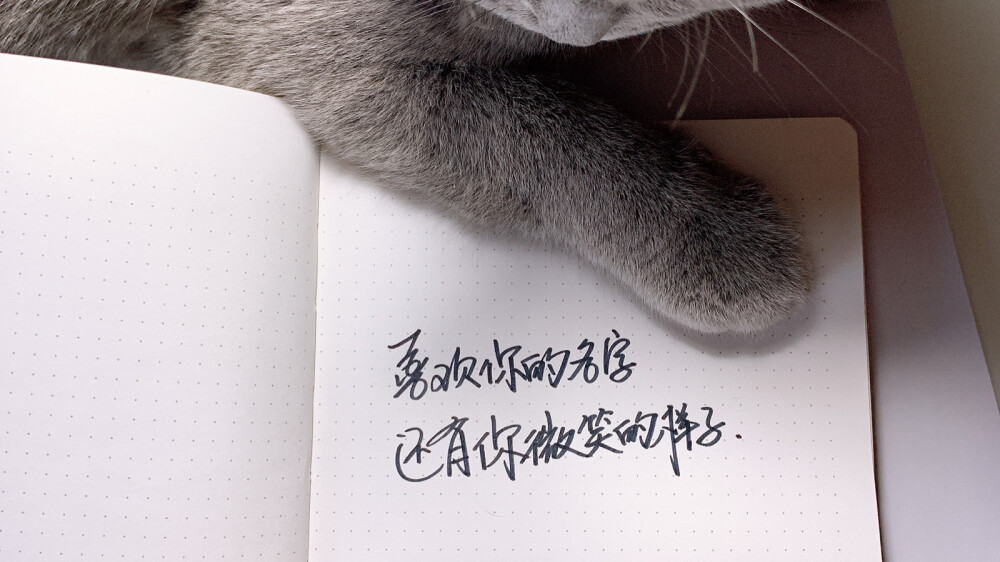 喜欢你的名字
还有你微笑的样子.